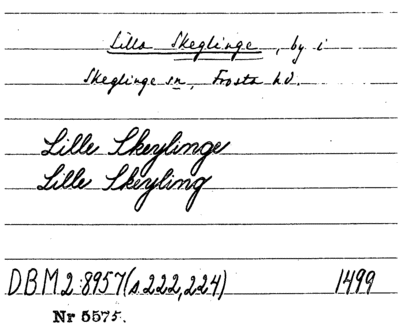 Lilla Skeglinge, by i
Skeglinge sn, Frosta hd.
Lille Skeylinge
Lille Skeyling
DBM 2:8957 (s 222, 224) 1499
Nr 5575.